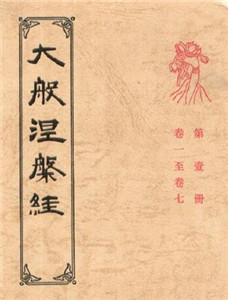 大般涅槃經
第壹冊
卷一至卷七